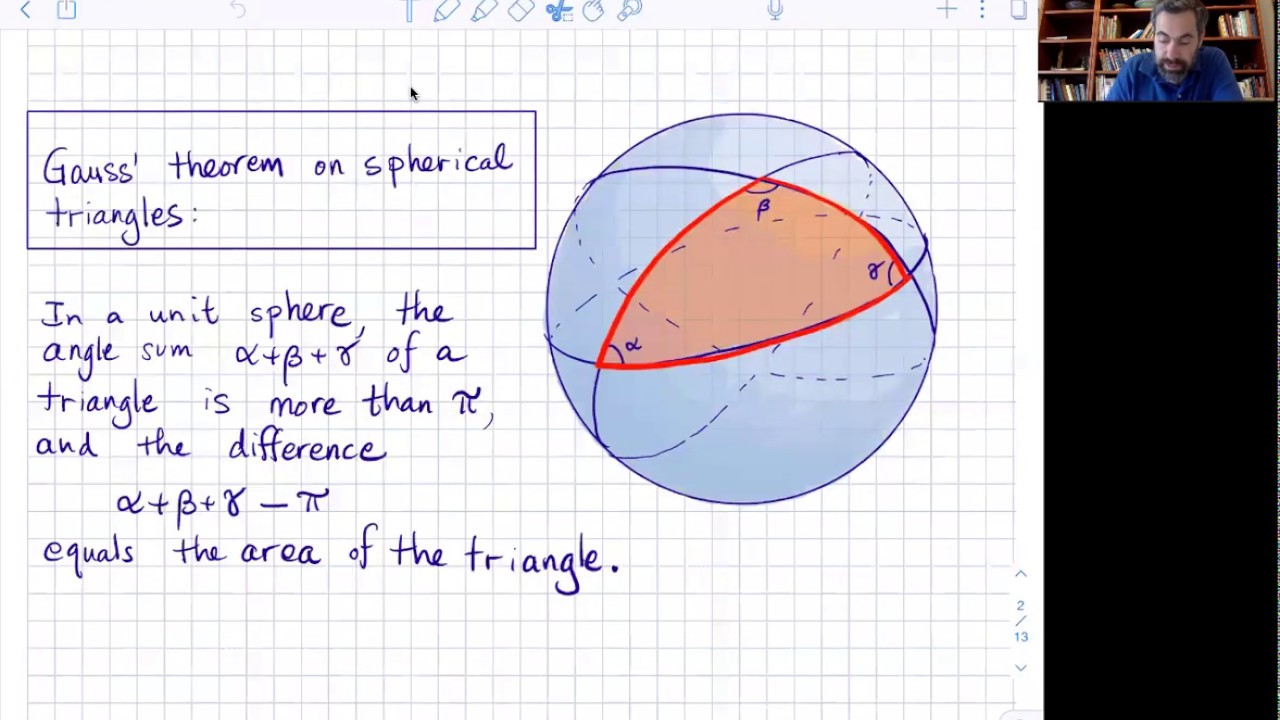 Gauss' theorem on spherical
triangles:
In a unit sphere, the
angle sum α+β+γ of a
triangle is more than π,
and the difference
α+β+γ – π
equals the area of the triangle.
β
γ
α
T
2
/
13